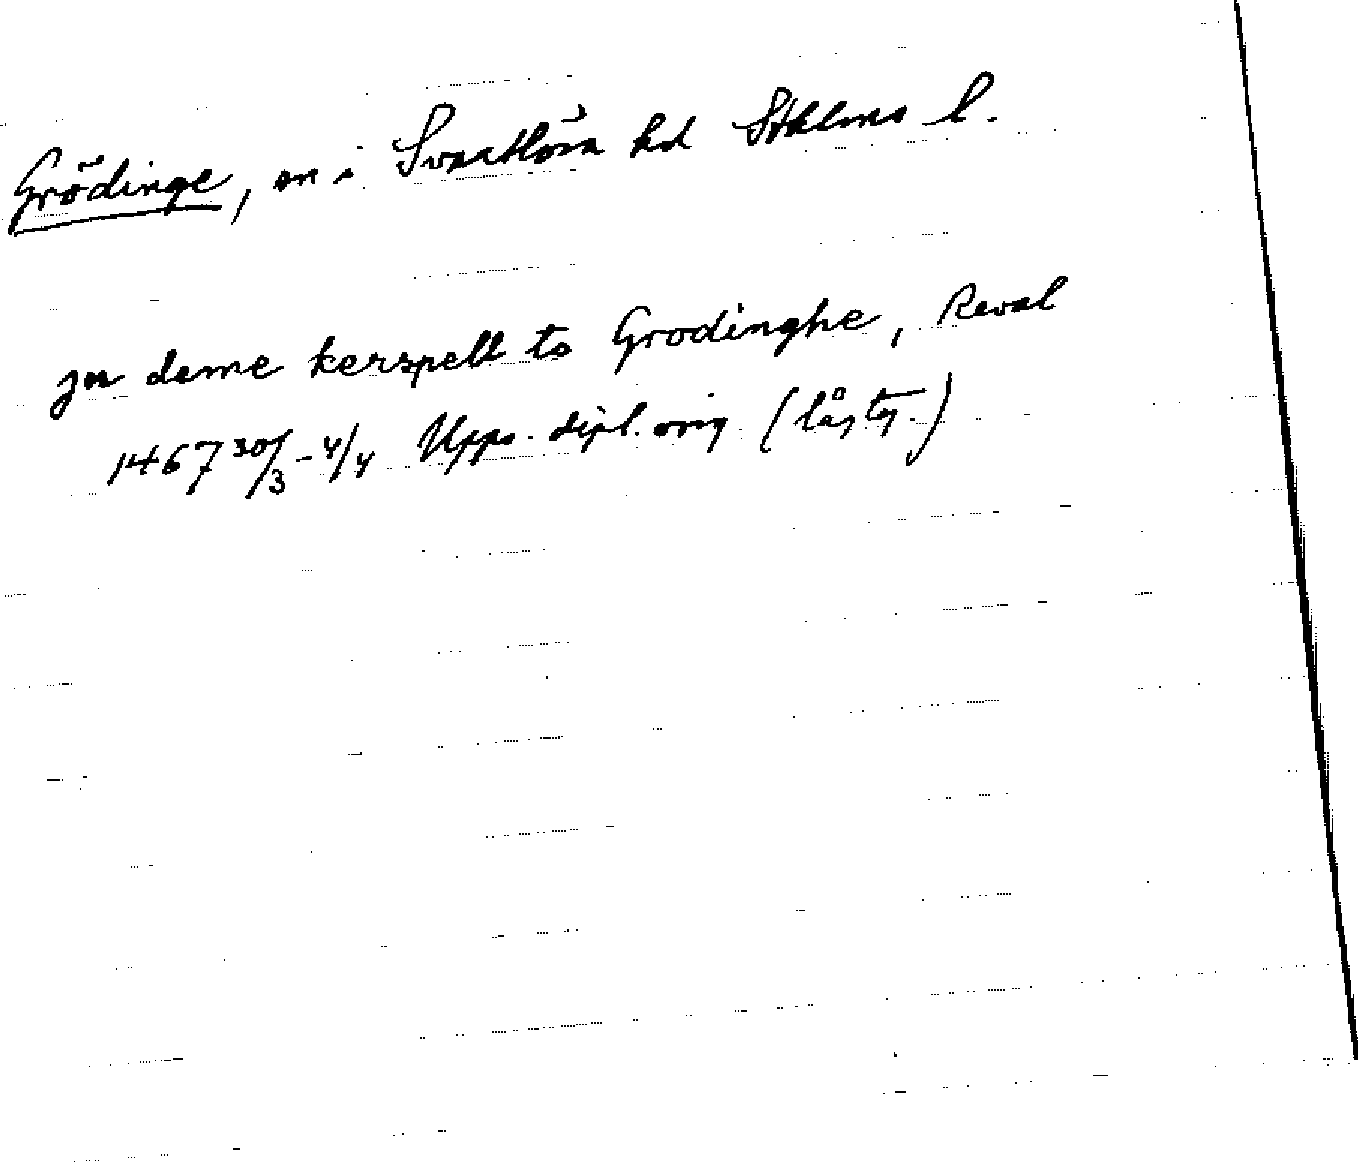 Grödinge, sn i Svartlösa hd Sthlms l.
jn deme kerspell to Grodinghe, Reval
1467 30/3 - 4/4 Upps. dipl. orig (lågty.)